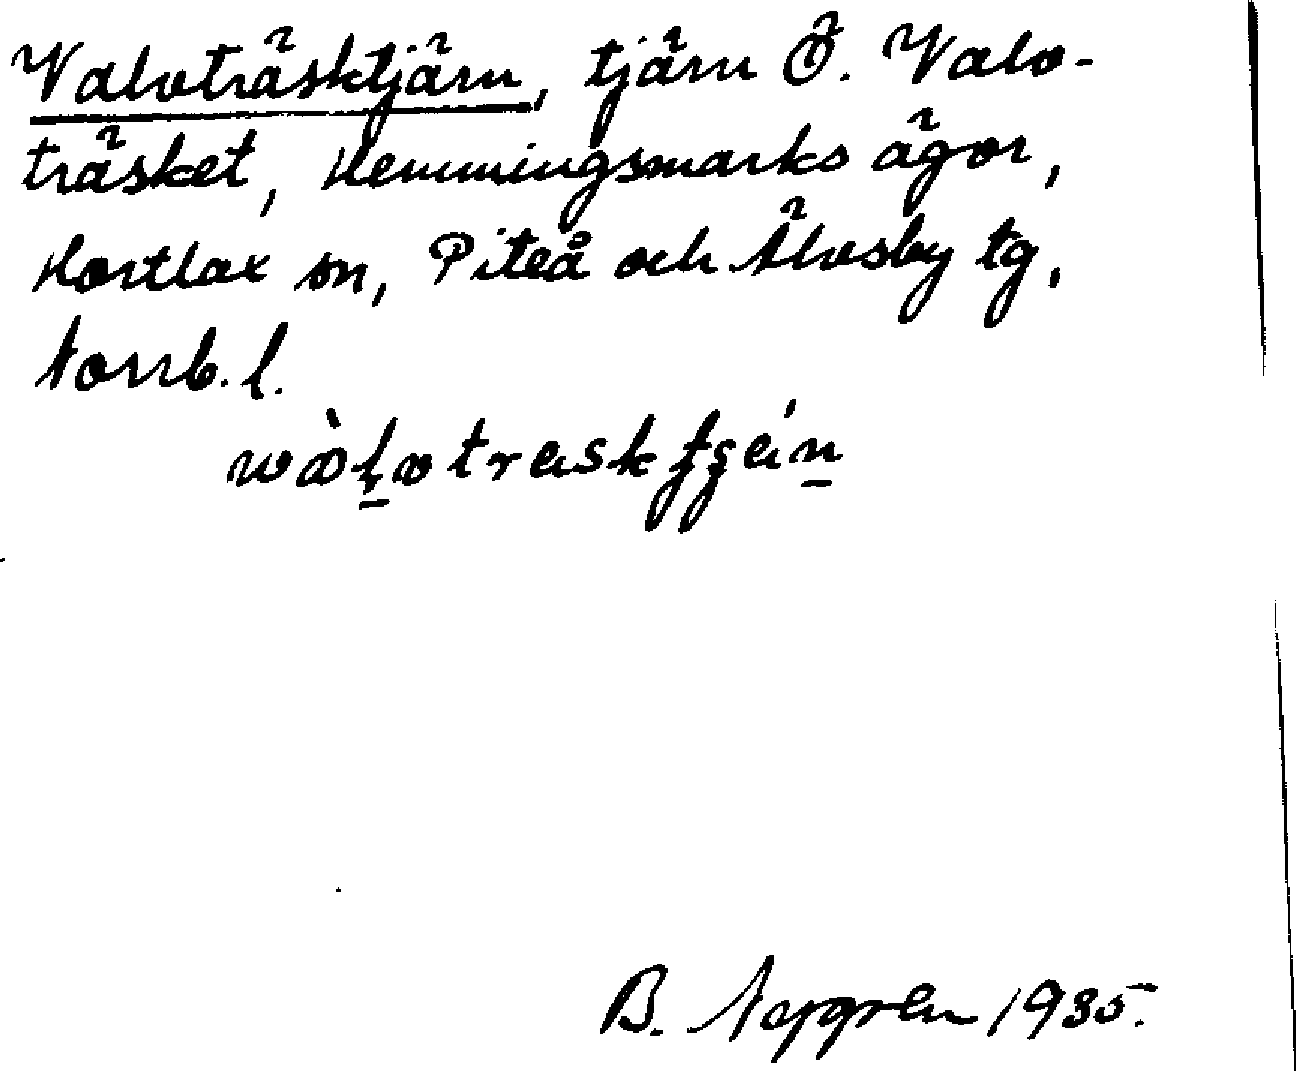 Valvträsktjärn, tjärn Ö. Valv-
träsket, Hemmingsmarks ägor,
Hortlax sn, Piteå och Älvsby tg,
Norrb. l.
B. Nygren 1935.